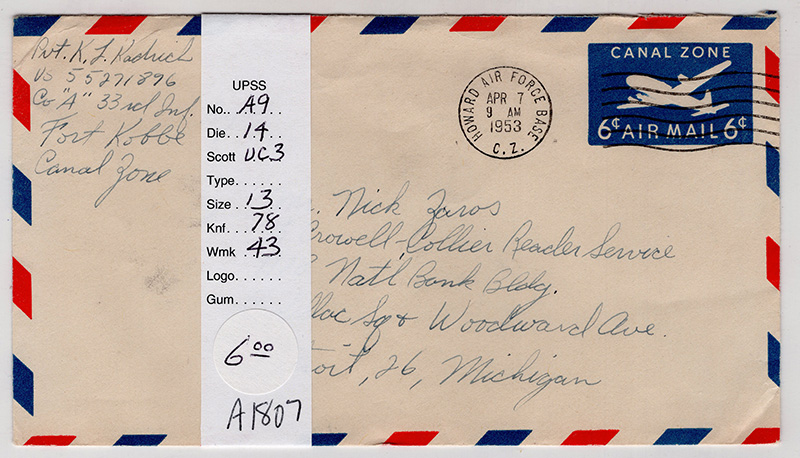 Pvt. K. L. Kadrich
US 55271896
Co "A" 33rd Inf.
Fort Kobbe
Canal Zone
UPSS
No.. A9
Die.. 14
Scott U.C.3
Type......
Size.. 13
Knf... 78
Wmk.. 43
Logo......
Gum......
6.00
A1807
HOWARD AIR FORCE BASE
APR 7
9 AM
1953
C. Z.
CANAL ZONE
6¢ AIR MAIL 6¢
Nick Zaros
Crowell-Collier Reader Service
Natl Bank Bldg.
llac Sq & Woodward Ave.
oit, 26, Michigan